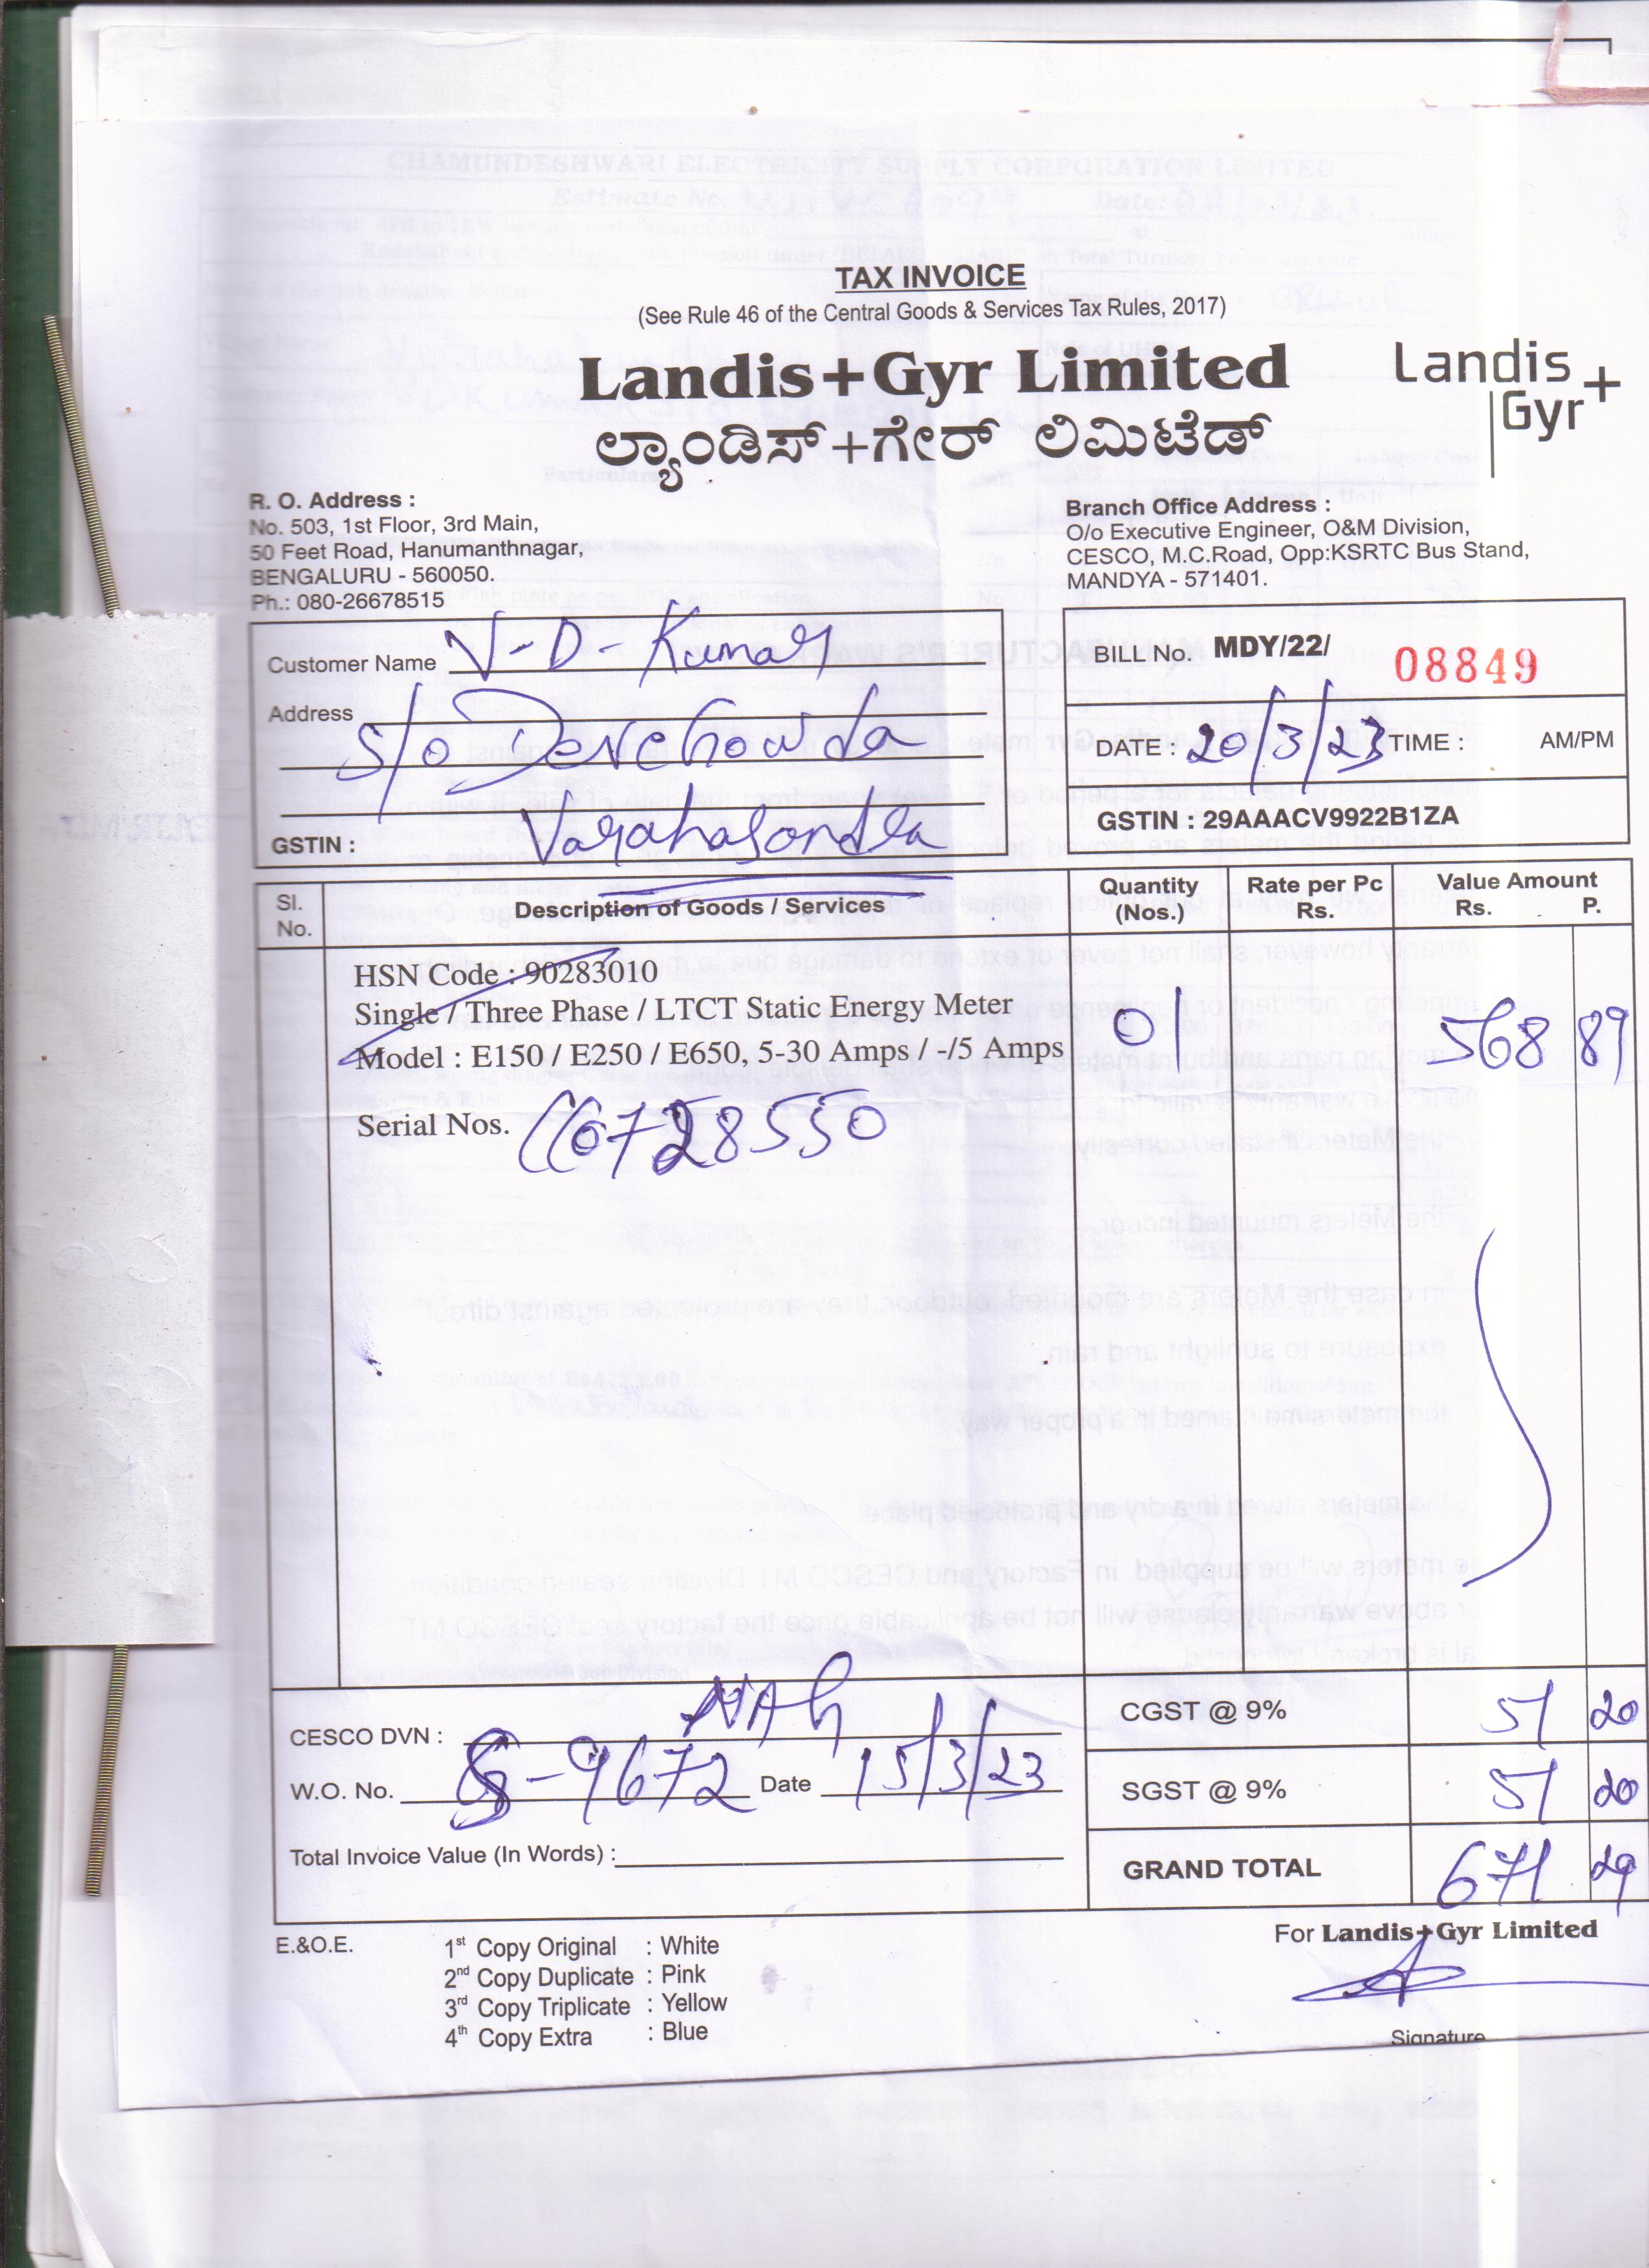 TAX INVOICE
(See Rule 46 of the Central Goods & Services Tax Rules, 2017)
Landis+Gyr Limited
ಲ್ಯಾಂಡಿಸ್+ಗೇರ್ ಲಿಮಿಟೆಡ್
Landis
Gyr+
R. O. Address :
No. 503, 1st Floor, 3rd Main,
50 Feet Road, Hanumanthnagar,
BENGALURU - 560050.
Ph.: 080-26678515
Branch Office Address :
O/o Executive Engineer, O&M Division,
CESCO, M.C.Road, Opp:KSRTC Bus Stand,
MANDYA - 571401.
Customer Name V-D-Kumar
Address
S/o DeveGowda
GSTIN : Varahasandra
BILL No. MDY/22/ 08849
DATE : 20/3/23 TIME : AM/PM
GSTIN : 29AAACV9922B1ZA
Sl. No. Description of Goods / Services Quantity (Nos.) Rate per Pc Rs. Value Amount Rs. P.
HSN Code : 90283010
Single / Three Phase / LTCT Static Energy Meter 01 568 89
Model : E150 / E250 / E650, 5-30 Amps / -/5 Amps
Serial Nos. 6728550
CESCO DVN :
CGST @ 9% 51 20
W.O. No. 9672 Date 15/3/23
SGST @ 9% 51 20
Total Invoice Value (In Words) :
GRAND TOTAL 671 29
E.&O.E.
1st Copy Original : White
2nd Copy Duplicate : Pink
3rd Copy Triplicate : Yellow
4th Copy Extra : Blue
For Landis+Gyr Limited
Signature